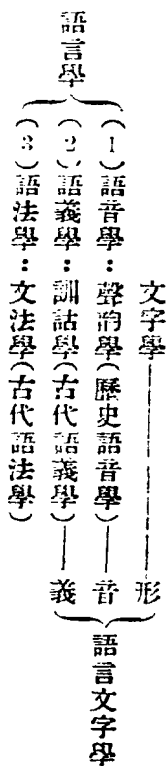 語言學
文字學——形
(1)語音學：聲韵學(歷史語音學)——音
(2)語義學：訓詁學(古代語義學)——義
(3)語法學：文法學(古代語法學)
語言文字學